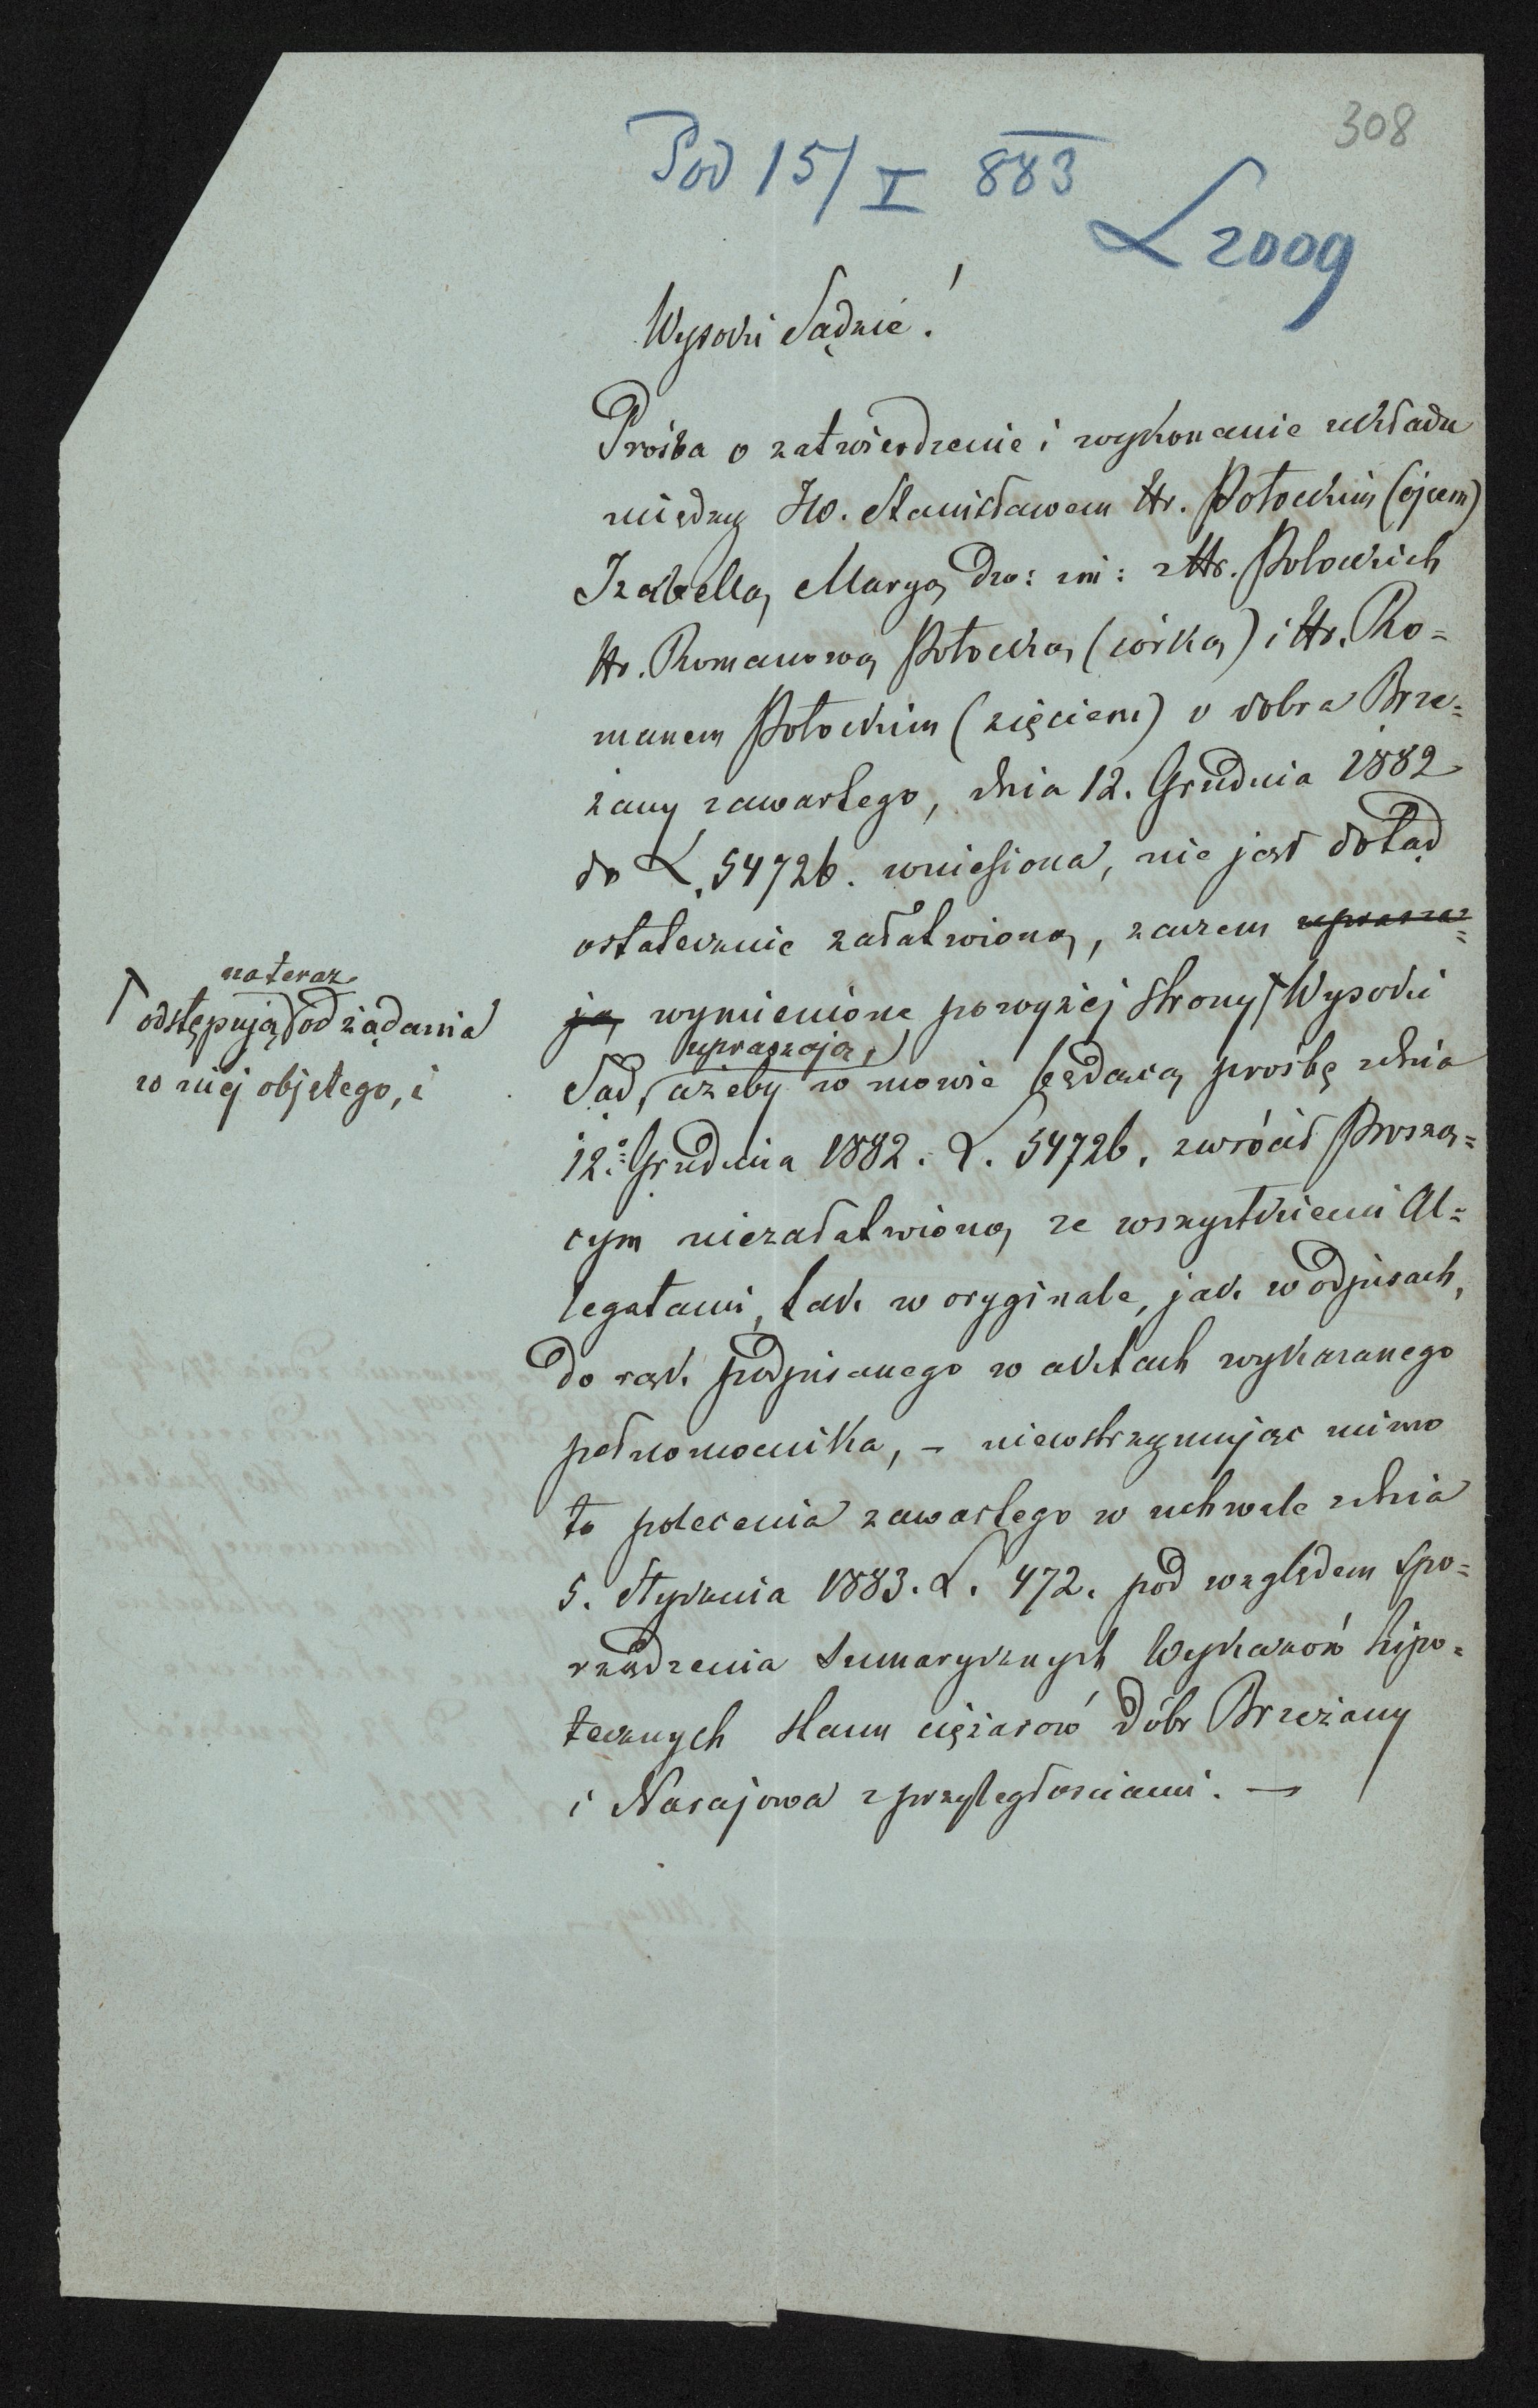 308
Pod 15/I 883
L 2009
Wysoki Sądzie!
Prośba o zatwierdzenie i wykonanie układu
między JW. Stanisławem Hr. Potockim (ojcem)
Izabellą Maryą dw: im: z Hr. Potockich
Hr. Romanową Potocką (córką) i Hr. Ro=
manem Potockim (zięciem) o dobra Brze=
żany zawartego, dnia 12. Grudnia 1882
do L. 54726. wniesiona, nie jest dotąd
ostatecznie załatwioną, zaczem uprasza=
ją wymienione powyżej strony Wysoki
upraszają,
Sąd, ażeby w mowie będącą prośbę zdnia
12. Grudnia 1882. L. 54726. zwrócił Proszą=
cym niezałatwioną ze wszystkiemi Al=
legatami, tak w oryginale, jak w odpisach,
do rąk podpisanego w aktach wykazanego
pełnomocnika, – niewstrzymując mimo
to polecenia zawartego w uchwale zdnia
5. Stycznia 1883. L. 472. pod względem spo=
rządzenia sumarycznych Wykazów hipo=
tecznych stanu ciężarów dóbr Brzeżany
i Narajowa z przyległościami. —
na teraz
odstępują od żądania
w niej objętego, i